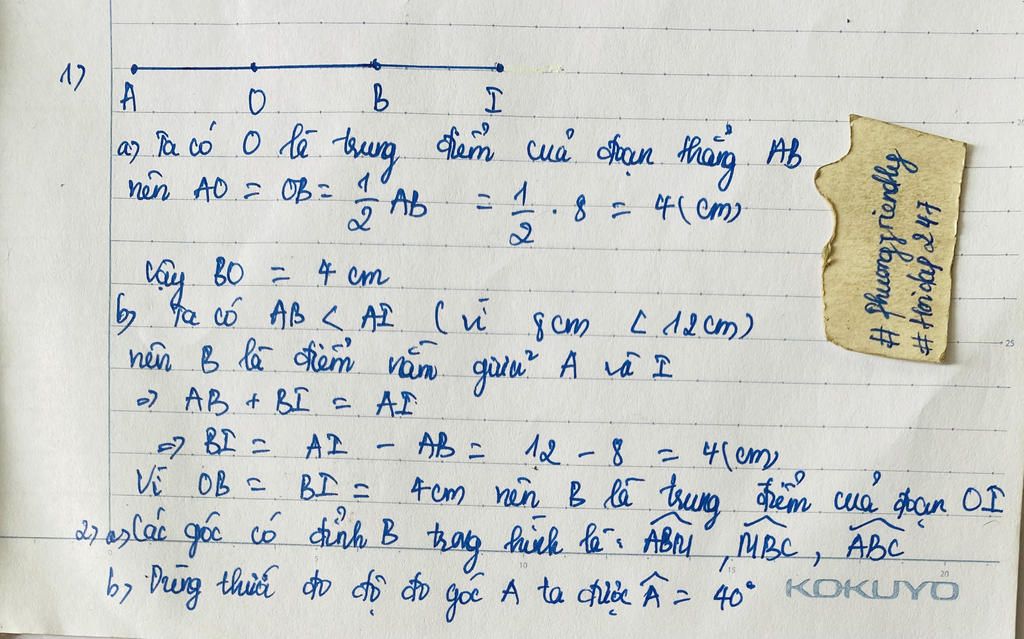 1)
A O B I
a) Ta có O là trung điểm của đoạn thẳng AB
nên AO = OB = 1/2 AB = 1/2 . 8 = 4 (cm)
Vậy BO = 4 cm
b) Ta có AB < AI ( vì 8cm < 12cm)
nên B là điểm nằm giữa A và I
=> AB + BI = AI
=> BI = AI - AB = 12 - 8 = 4(cm)
Vì OB = BI = 4cm nên B là trung điểm của đoạn OI
2) a) Các góc có đỉnh B trong hình là: \widehat{ABM}, \widehat{MBC}, \widehat{ABC}
b) Dùng thước đo độ đo góc A ta được \widehat{A} = 40°
# phuongfriendly
# Hoidap247
KOKUYO
25
10
15
20